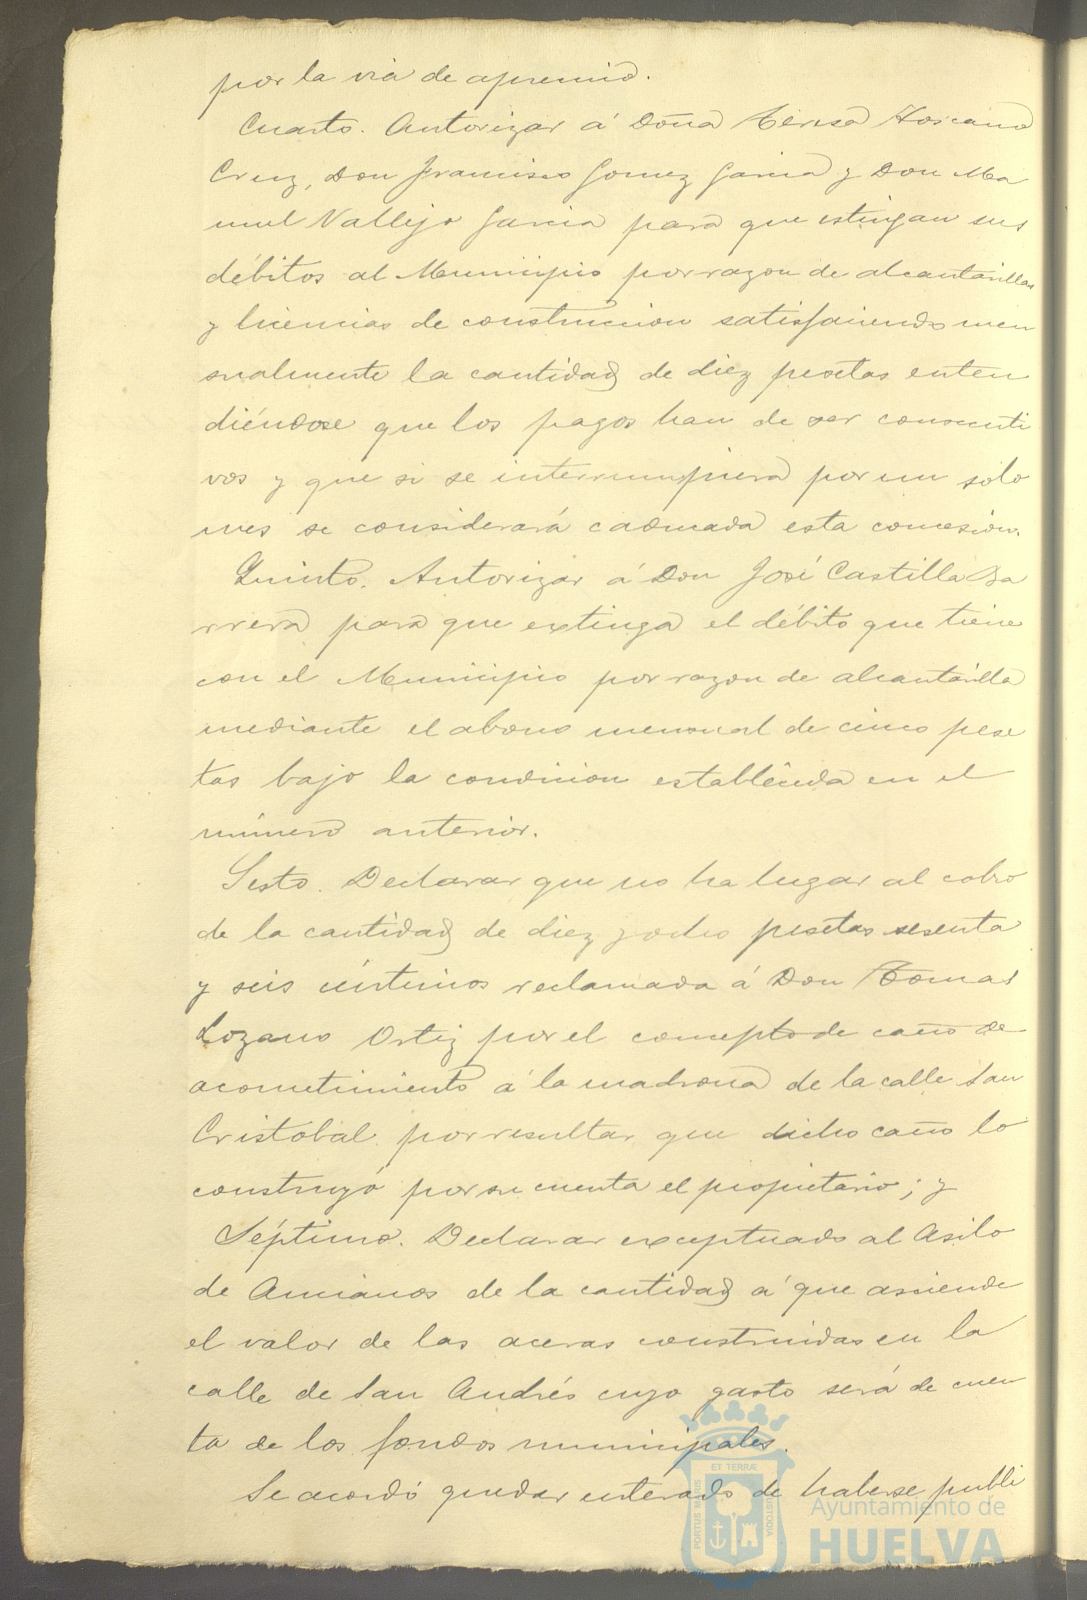 por la via de apremio.
Cuarto. Autorizar á Doña Teresa Toscano
Cruz, Don Francisco Gomez Garcia y Don Ma
nuel Vallejo Garcia para que estingan sus
débitos al Municipio por razon de alcantarillas
y licencias de construccion satisfaciendo men
sualmente la cantidad de diez pesetas enten
diéndose que los pagos han de ser consecuti
vos y que si se interrumpiera por un solo
mes se considerará caducada esta concesion.
Quinto. Autorizar á Don José Castilla Ba
rrera para que extinga el débito que tiene
con el Municipio por razon de alcantarilla
mediante el abono mensual de cinco pese
tas bajo la condicion establecida en el
número anterior.
Sesto. Declarar que no ha lugar al cobro
de la cantidad de diez y ocho pesetas sesenta
y seis céntimos reclamada á Don Tomas
Lozano Ortiz por el concepto de caño de
acometimiento á la madrona de la calle San
Cristobal por resultar que dicho caño lo
construyó por su cuenta el propietario; y
Séptimo. Declarar exceptuado al Asilo
de Ancianos de la cantidad á que asciende
el valor de las aceras construidas en la
calle de San Andrés cuyo gasto será de cuen
ta de los fondos municipales.
Se acordó quedar enterado de haberse publi
PORTUS MARIS
ET TERRÆ
CUSTODIA
Ayuntamiento de
HUELVA